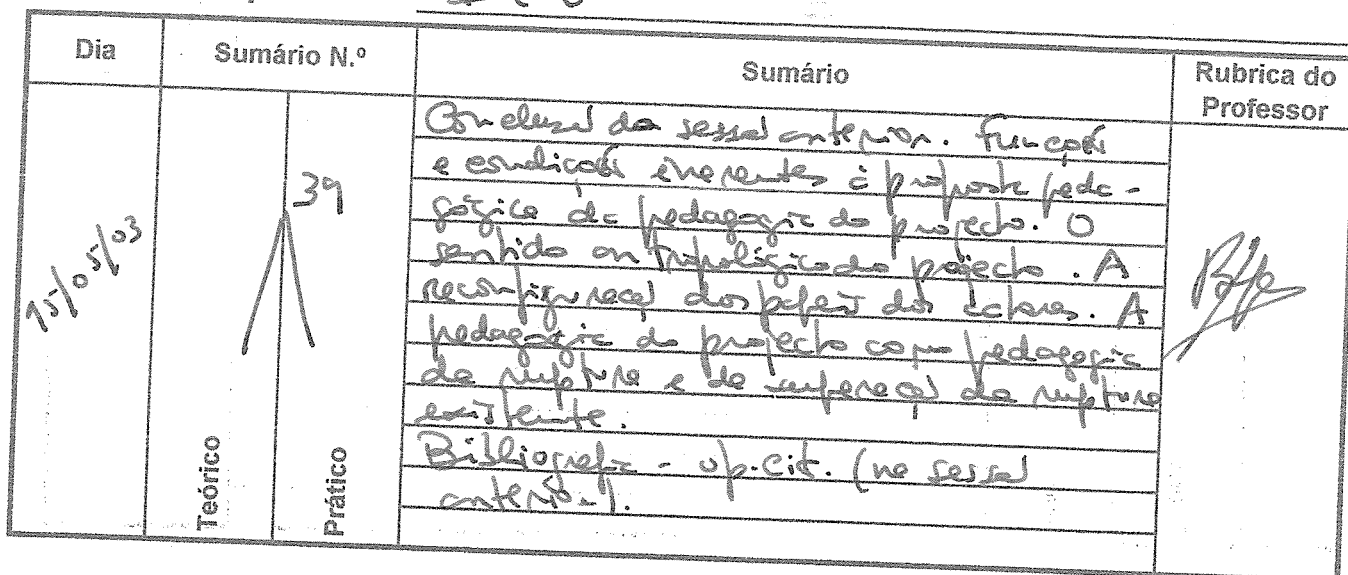 Dia
Sumário N.º
Sumário
Rubrica do
Professor
15/05/03
39
Teórico
Prático
Conclusão da sessão anterior. Funções
e condições inerentes à proposta peda-
gógica da pedagogia do projecto. O
sentido antropológico do projecto. A
reconfiguração dos papéis dos actores. A
pedagogia do projecto como pedagogia
da ruptura e de superação da ruptura
existente.
Bibliografia - op. cit. (na sessão
anterior).